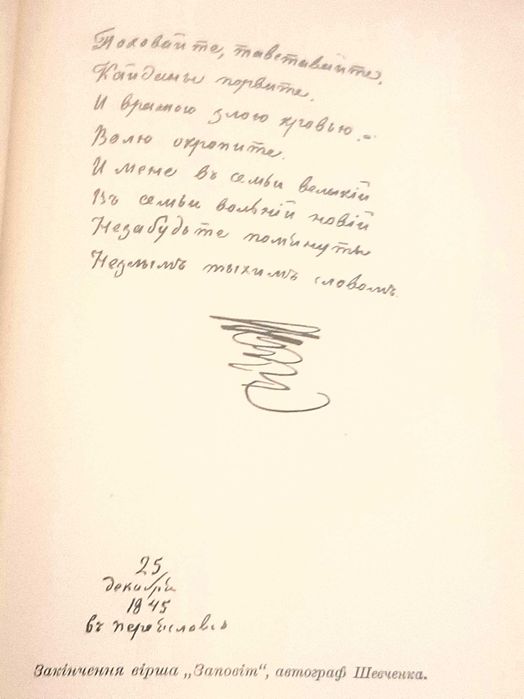 Поховайте, та вставайте.
Кайданы порвите.
И вражою злою кровью
Волю окропите.
И мене въ семьи великій
Въ семьи вольній новій
Незабудьте помьянуты
Незлымъ тыхимъ словомъ.
25
декабря
1845
въ Переяславѣ
Закінчення вірша „Заповіт“, автограф Шевченка.